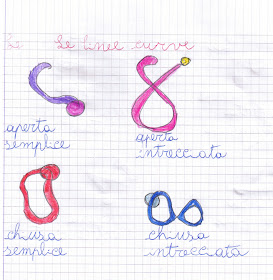 Le linee curve
aperta
semplice
aperta
intrecciata
chiusa
semplice
chiusa
intrecciata